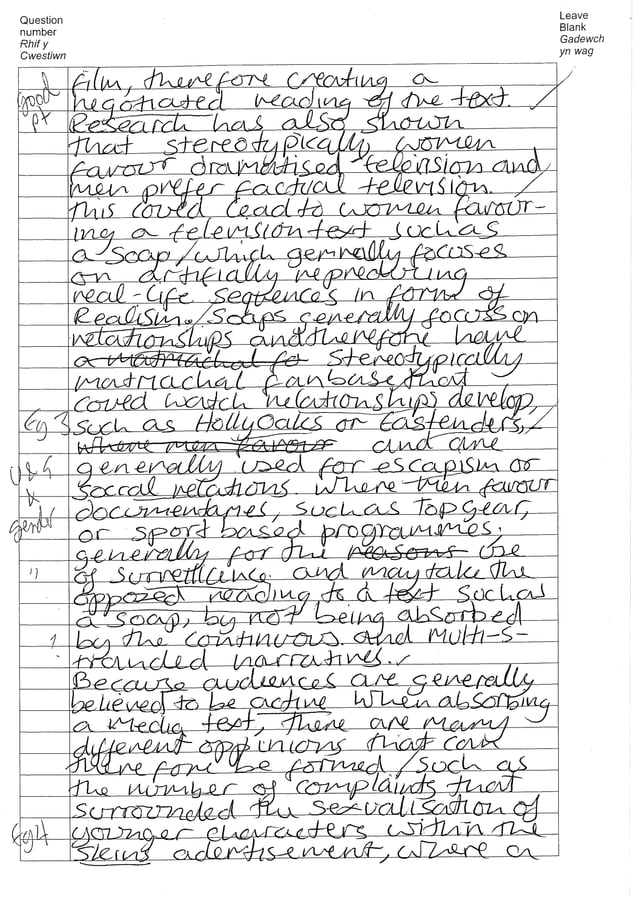 Question
number
Rhif y
Cwestiwn
Leave
Blank
Gadewch
yn wag
good
pt
film, therefore creating a
negotiated reading of the text.
Research has also shown
that stereotypically women
favour dramatised television and
men prefer factual television.
This could lead to women favour-
ing a television text such as
a soap, which generally focuses
on artifially reproducing
real-life sequences in form of
Realism. Soaps generally focus on
relationships and therefore have
a matriachal fo stereotypically
matriachal fanbase that
could watch relationships develop,
Eg 3
such as HollyOaks or Eastenders,
where men favour and are
U & G
&
gender
generally used for escapism or
social relations. Where men favour
documentaries, such as Top Gear,
or sport based programmes,
generally for the reasons use
"
of surveillence. and may take the
opposed reading to a text such as
a soap, by not being absorbed
?
by the continuous and multi-s-
tranded narratives.
Because audiences are generally
believed to be active when absorbing
a Media text, there are many
different oppinions that can
therefore be formed, such as
the number of complaints that
surrounded the sexualisation of
Eg 4
younger characters within the
Skins adertisement, where a